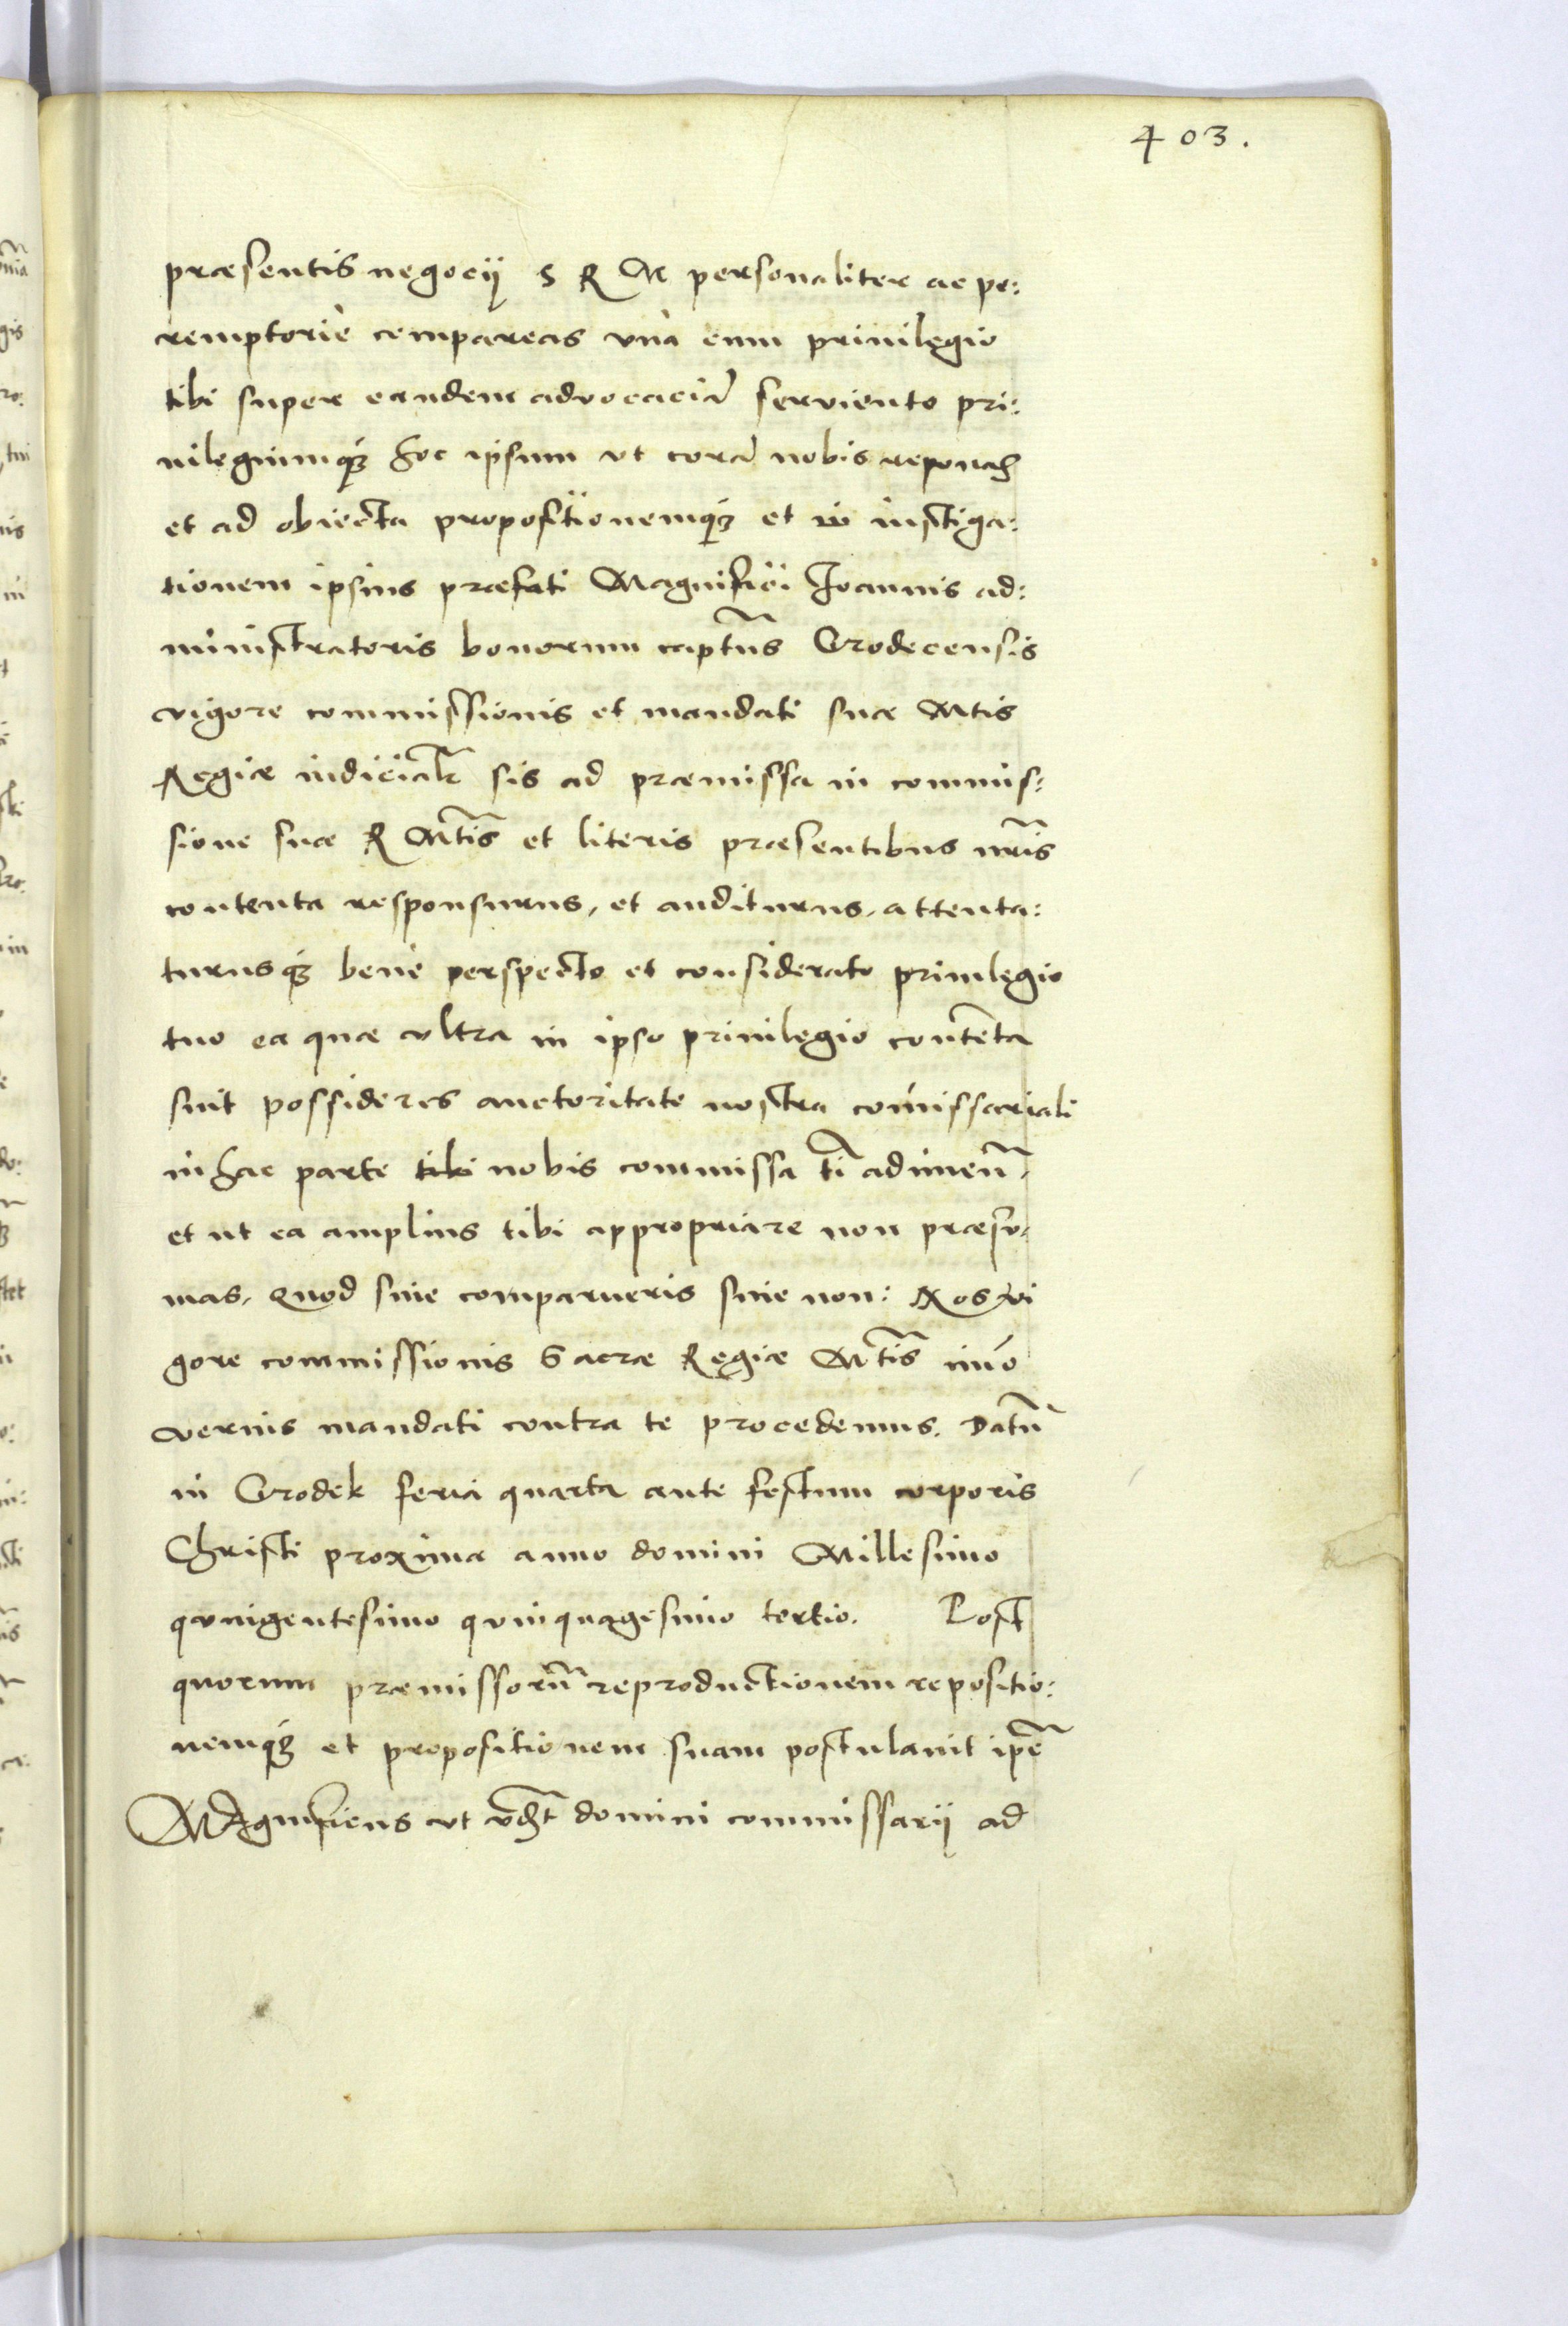 403.
præsentis negocij S R M personaliter ac pe:
remptorie compareas vnà cum priuilegio
tibi super eandem aduocaciã seruiente pri:
uilegiumq3 hoc ipsum vt corã nobis reponas
et ad obiecta propositionemq3 et instiga:
tionem ipsius præfati Magnifici Joannis ad:
ministratoris bonorum captus Grodecensis
vigore commissionis et mandati suæ Mtis
Regiæ iudicialr sis ad præmissa in commis:
sione suæ R Mtis et literis præsentibus nris
contenta responsurus, et auditurus, attenta:
turusq3 bene perspecto et considerato priuilegio
tuo ea quæ vltra in ipso priuilegio contenta
sint possideres auctoritate nostra comissariali
in hac parte nobis commissa adimen
et ut ea amplius tibi appropriare non præsu:
mas, quod siue comparueris siue non: Nos vi
gore commissionis Sacræ Regiæ Mtis imò
verius mandati contra te procedemus. Datũ
in Grodek feria quarta ante festum corporis
Christi proxima anno domini Millesimo
quingentesimo quinquagesimo tertio. Post
quorum præmissorũ reproductionem repositio:
nemq3 et propositionem suam postulauit ipse
Magnificus vt domini commissarij ad